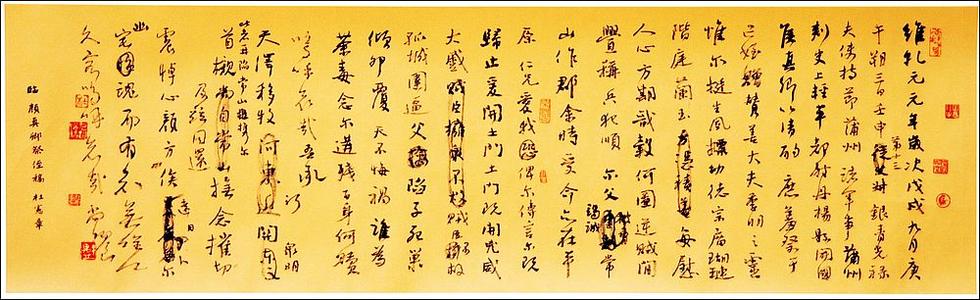 維乾元元年歲次戊戌九月庚
午朔三日壬申第十三叔銀青光祿
夫使持節蒲州諸軍事蒲州
刺史上輕車都尉丹楊縣開國
侯真卿以清酌庶羞祭于
亡姪贈贊善大夫季明之靈
惟爾挺生夙標幼德宗廟瑚璉
階庭蘭玉方憑積善每慰
人心方期戩穀何圖逆賊閒
釁稱兵犯順爾父竭誠常
山作郡余時受命亦在平
原仁兄愛我俾爾傳言爾既
歸止爰開土門土門既開凶威
大蹙賊臣擁眾不救賊臣擁救
孤城圍逼父陷子死巢
傾卵覆天不悔禍誰為
荼毒念爾遘殘百身何贖
嗚呼哀哉吾承
天澤移牧河東近河關泉明
比者再陷常山攜爾
首櫬及茲同還撫念摧切
震悼心顏方俟遠日卜爾
幽宅魂而有知無嗟
久客嗚呼哀哉尚饗
臨顏真卿祭侄稿 杜憲章